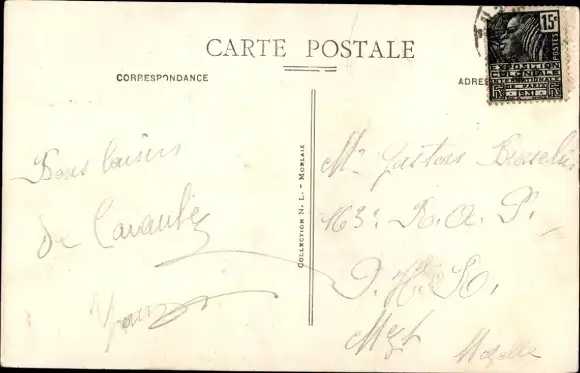 CARTE POSTALE
CORRESPONDANCE
ADRES
15c
POSTES
EXPOSITION
COLONIALE
INTERNATIONALE
DE PARIS
1931
COLLECTION N. L. - MORLAIX
Bons baisers
de
Mr Gaston
163e R. A. P.
Metz
Moselle